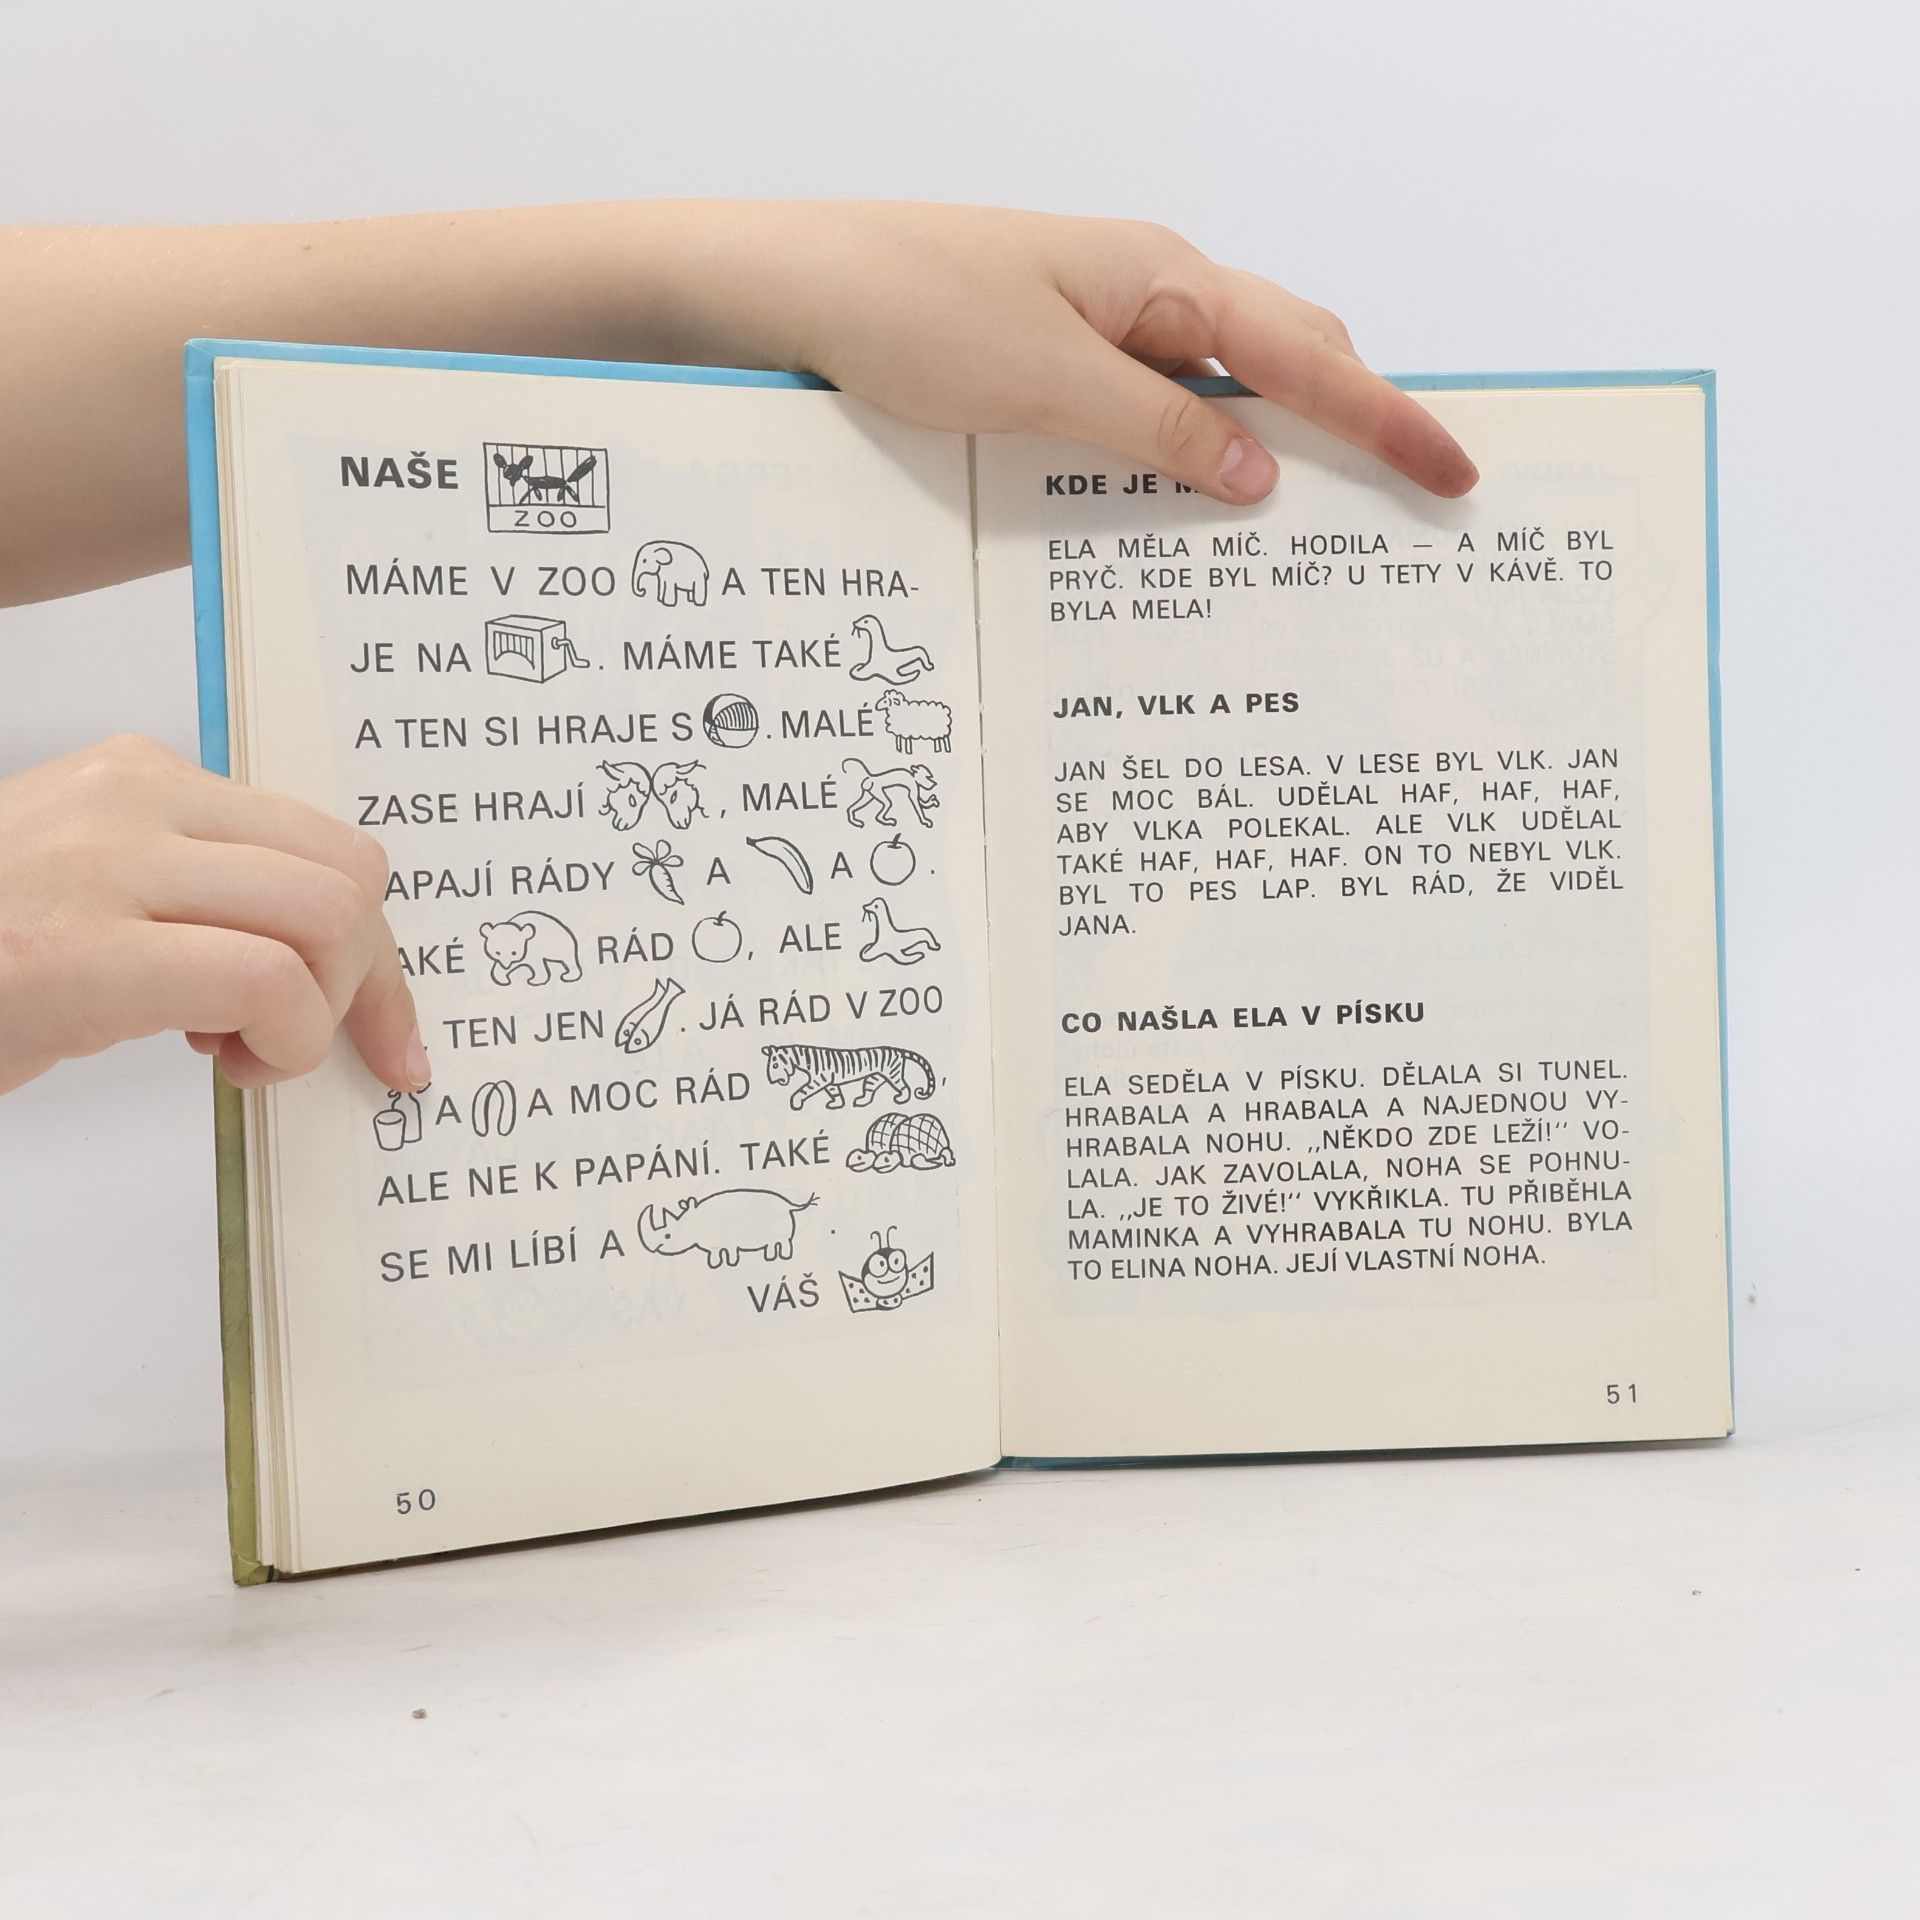 NAŠE
ZOO
MÁME V ZOO A TEN HRA-
JE NA . MÁME TAKÉ
A TEN SI HRAJE S . MALÉ
ZASE HRAJÍ , MALÉ
RÁDY A A .
RÁD , ALE
, TEN JEN . JÁ RÁD V ZOO
A A MOC RÁD ,
ALE NE K PAPÁNÍ. TAKÉ
SE MI LÍBÍ A .
VÁŠ
50
KDE JE
ELA MĚLA MÍČ. HODILA — A MÍČ BYL
PRYČ. KDE BYL MÍČ? U TETY V KÁVĚ. TO
BYLA MELA!
JAN, VLK A PES
JAN ŠEL DO LESA. V LESE BYL VLK. JAN
SE MOC BÁL. UDĚLAL HAF, HAF, HAF,
ABY VLKA POLEKAL. ALE VLK UDĚLAL
TAKÉ HAF, HAF, HAF. ON TO NEBYL VLK.
BYL TO PES LAP. BYL RÁD, ŽE VIDĚL
JANA.
CO NAŠLA ELA V PÍSKU
ELA SEDĚLA V PÍSKU. DĚLALA SI TUNEL.
HRABALA A HRABALA A NAJEDNOU VY-
HRABALA NOHU. „NĚKDO ZDE LEŽÍ!“ VO-
LALA. JAK ZAVOLALA, NOHA SE POHNU-
LA. „JE TO ŽIVÉ!“ VYKŘIKLA. TU PŘIBĚHLA
MAMINKA A VYHRABALA TU NOHU. BYLA
TO ELINA NOHA. JEJÍ VLASTNÍ NOHA.
51